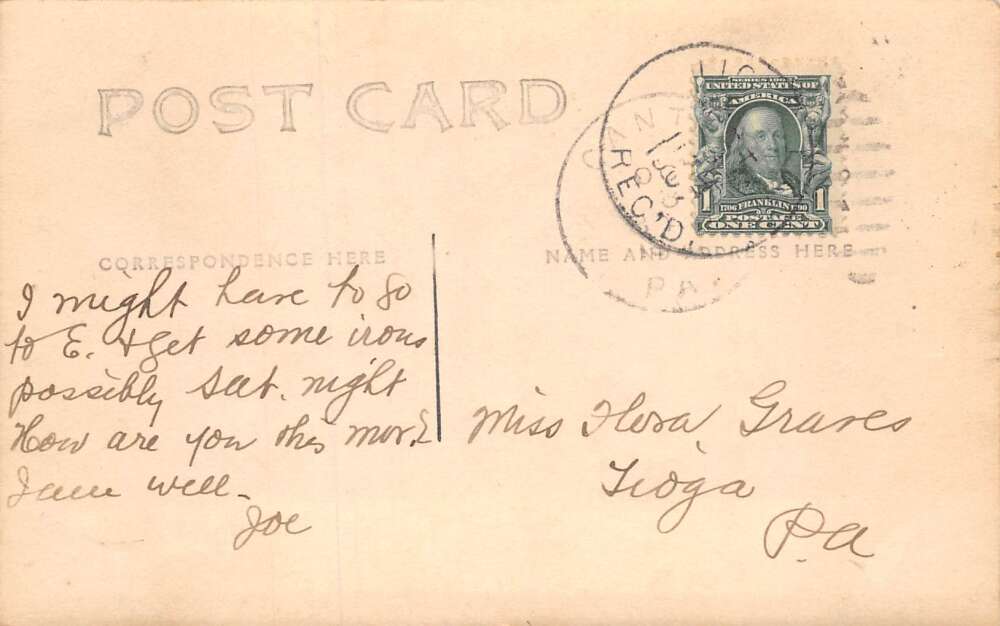 POST CARD
CORRESPONDENCE HERE
NAME AND ADDRESS HERE
I might have to go
to E. & get some irons
possibly Sat. night
How are you this mor.?
I am well -
Joe
Miss Flora Graves
Tioga
Pa
SERIES 1902
UNITED STATES OF
AMERICA
1706 FRANKLIN 1790
1 1
POSTAGE
ONE CENT
REC'D.
CANT
PA.